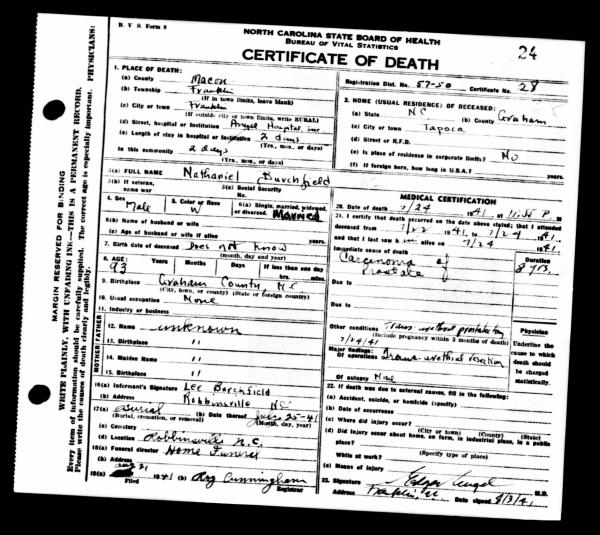 B. V. S. Form 8
NORTH CAROLINA STATE BOARD OF HEALTH
BUREAU OF VITAL STATISTICS
24
CERTIFICATE OF DEATH
Registration Dist. No. 57-50 Certificate No. 28
1. PLACE OF DEATH:
(a) County Macon
(b) Township Franklin
(If in town limits, leave blank)
(c) City or town Franklin
(If outside city or town limits, write RURAL)
(d) Street, hospital or institution Angel Hospital, Inc
(e) Length of stay in hospital or institution 2 days
In this community 2 days
(Yrs., mos., or days)
2. HOME (USUAL RESIDENCE) OF DECEASED:
(a) State NC (b) County Graham
(c) City or town Tapoca
(d) Street or R.F.D.
(e) Is place of residence in corporate limits? No
(f) If foreign born, how long in U.S.A.? years
3(a) FULL NAME Nathaniel Burchfield
3(b) If veteran, name war
3(c) Social Security No.
4. Sex Male
5. Color or Race W
6(a) Single, married, widowed, or divorced. Married
6(b) Name of husband or wife
6(c) Age of husband or wife if alive years
7. Birth date of deceased Does not Know
(month, day and year)
8. AGE: Years Months Days If less than one day
93 hrs. min.
9. Birthplace Graham County N.C.
(City, town, or county) (State or foreign country)
10. Usual occupation None
11. Industry or business
FATHER
12. Name unknown
13. Birthplace "
MOTHER
14. Maiden Name "
15. Birthplace "
16(a) Informant's Signature Lee Borchfield
(b) Address Robbinsville NC
17(a) Burial (b) Date thereof July 25-41
(Burial, cremation, or removal) (Month, day, year)
(c) Cemetery
(d) Location Robbinsville N.C.
18(a) Funeral director Home Funeral
(b) Address
19(a) Aug 21 1941 (b) Roy Cunningham
Registrar
MEDICAL CERTIFICATION
20. Date of death 7/24 1941 at 11:50 P. M.
21. I certify that death occurred on the date above stated; that I attended
deceased from 7/22 1941 to 7/24 1941
and that I last saw him alive on 7/24 1941
Immediate cause of death Duration
Carcinoma of Prostate
Due to
Due to
Other conditions
(Include pregnancy within 3 months of death)
7/24/41
Major findings:
Of operations Trans-urethral resection
Of autopsy None
Physician
Underline the cause to which death should be charged statistically.
22. If death was due to external causes, fill in the following:
(a) Accident, suicide, or homicide (specify)
(b) Date of occurrence
(c) Where did injury occur?
(City or town) (County) (State)
(d) Did injury occur about home, on farm, in industrial place, in a public place?
(Specify type of place)
While at work?
(e) Means of injury
23. Signature Edgar Angel M.D.
Address Franklin, NC Date signed 8/3/41
MARGIN RESERVED FOR BINDING
WRITE PLAINLY, WITH UNFADING INK—THIS IS A PERMANENT RECORD.
Every item of information should be carefully supplied. The correct age is especially important. PHYSICIANS:
Please write the causes of death clearly and legibly.